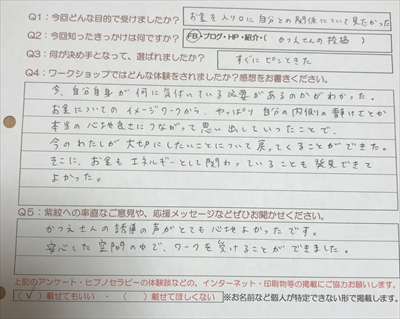 Q1：今回どんな目的で受けましたか？ お金を入り口に自分との関係について見たかった
Q2：今回知ったきっかけは何ですか？ FB・ブログ・HP・紹介・( かつえさんの投稿 )
Q3：何が決め手となって、選ばれましたか？ すぐにピンときた
Q4：ワークショップではどんな体験をされましたか？感想をお書きください。
今、自分自身が何に気付いている必要があるのかがわかった。
お金についてのイメージワークから、やっぱり自分の内側の静けさとか
本当の心地良さにつながって思い出していったことで、
今のわたしが大切にしたいことについて戻ってくることができた。
そこに、お金もエネルギーとして関わっていることも発見できて
よかった。
Q5：紫紋への率直なご意見や、応援メッセージなどぜひお聞かせください。
かつえさんの誘導の声がとても心地よかったです。
安心した空間の中で、ワークを受けることができました。
上記のアンケート・ヒプノセラピーの体験談などの、インターネット・印刷物等の掲載にご協力お願いします。
( ✓ ) 載せてもいい ・ ( ) 載せてほしくない ※お名前など個人が特定できない形で掲載します。